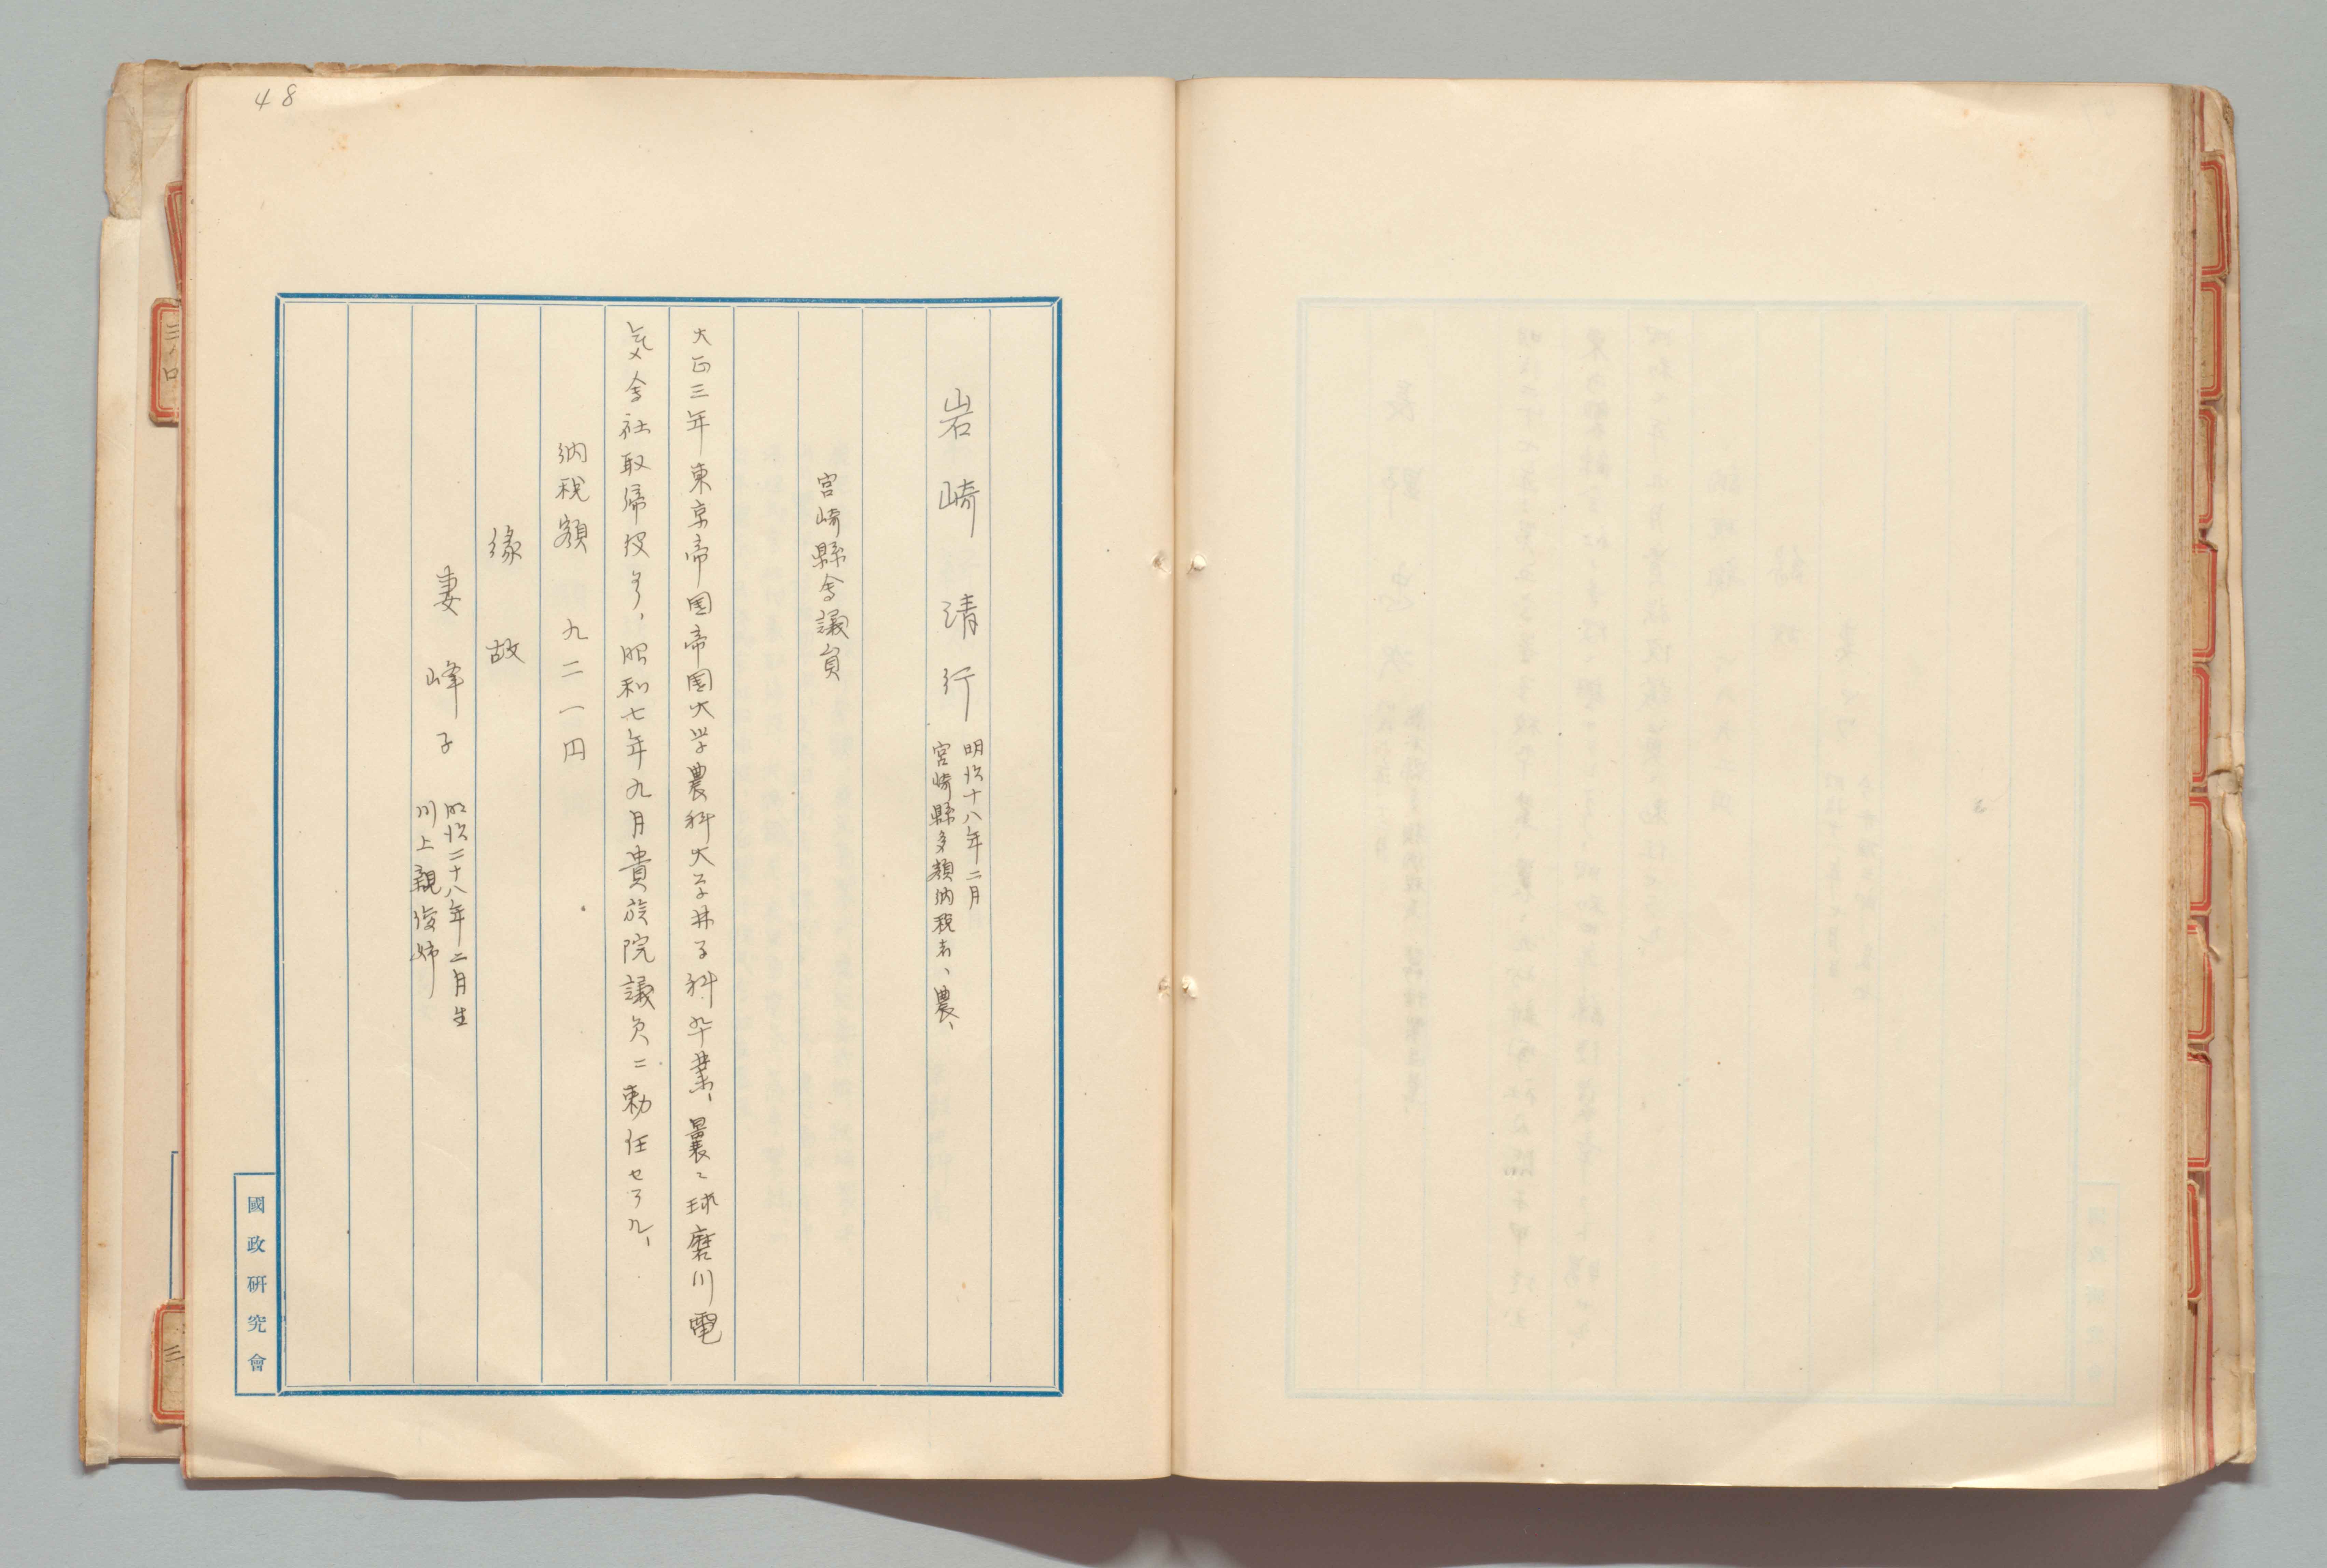 48
岩崎清行
明治十八年二月
宮崎縣多額納税者、農、
宮崎縣会議員
大正三年東京帝国帝国大学農科大学林学科卒業、曩ニ球磨川電
気会社取締役タリ、昭和七年九月貴族院議員ニ勅任セラル、
納税額 九二一円
縁故
妻 峰子
明治二十八年二月生
川上親俊姉
國政研究會